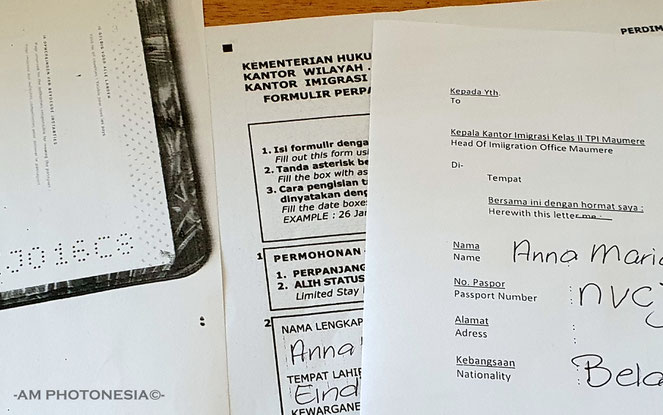 J016C8
KEMENTERIAN HUKU
KANTOR WILAYAH
KANTOR IMIGRASI
FORMULIR PERPA
1. Isi formulir denga
Fill out this form usi
2. Tanda asterisk be
Fill the box with as
3. Cara pengisian t
dinyatakan denga
Fill the date boxe
EXAMPLE : 26 Jan
1
PERMOHONAN
1. PERPANJANG
2. ALIH STATUS
Limited Stay
2
NAMA LENGKAP
Anna
TEMPAT LAHIR
Eind
KEWARGANE
PERDIM
Kepada Yth.
To
Kepala Kantor Imigrasi Kelas II TPI Maumere
Head Of Imiigration Office Maumere
Di-
Tempat
Bersama ini dengan hormat saya :
Herewith this letter me :
Nama
Name
Anna Maria
No. Paspor
Passport Number
: nvcj
Alamat
Adress
:
:
Kebangsaan
Nationality
: Bela
-AM PHOTONESIA©-